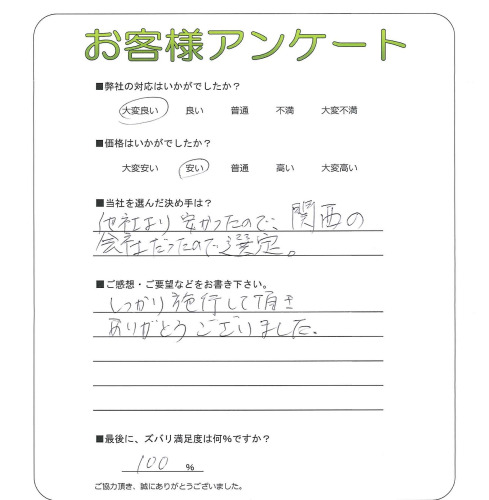 お客様アンケート
■弊社の対応はいかがでしたか?
大変良い 良い 普通 不満 大変不満
■価格はいかがでしたか?
大変安い 安い 普通 高い 大変高い
■当社を選んだ決め手は?
他社より安かったので、関西の
会社だったので選定。
■ご感想・ご要望などをお書き下さい。
しっかり施行して頂き
ありがとうございました。
■最後に、ズバリ満足度は何%ですか?
100 %
ご協力頂き、誠にありがとうございました。